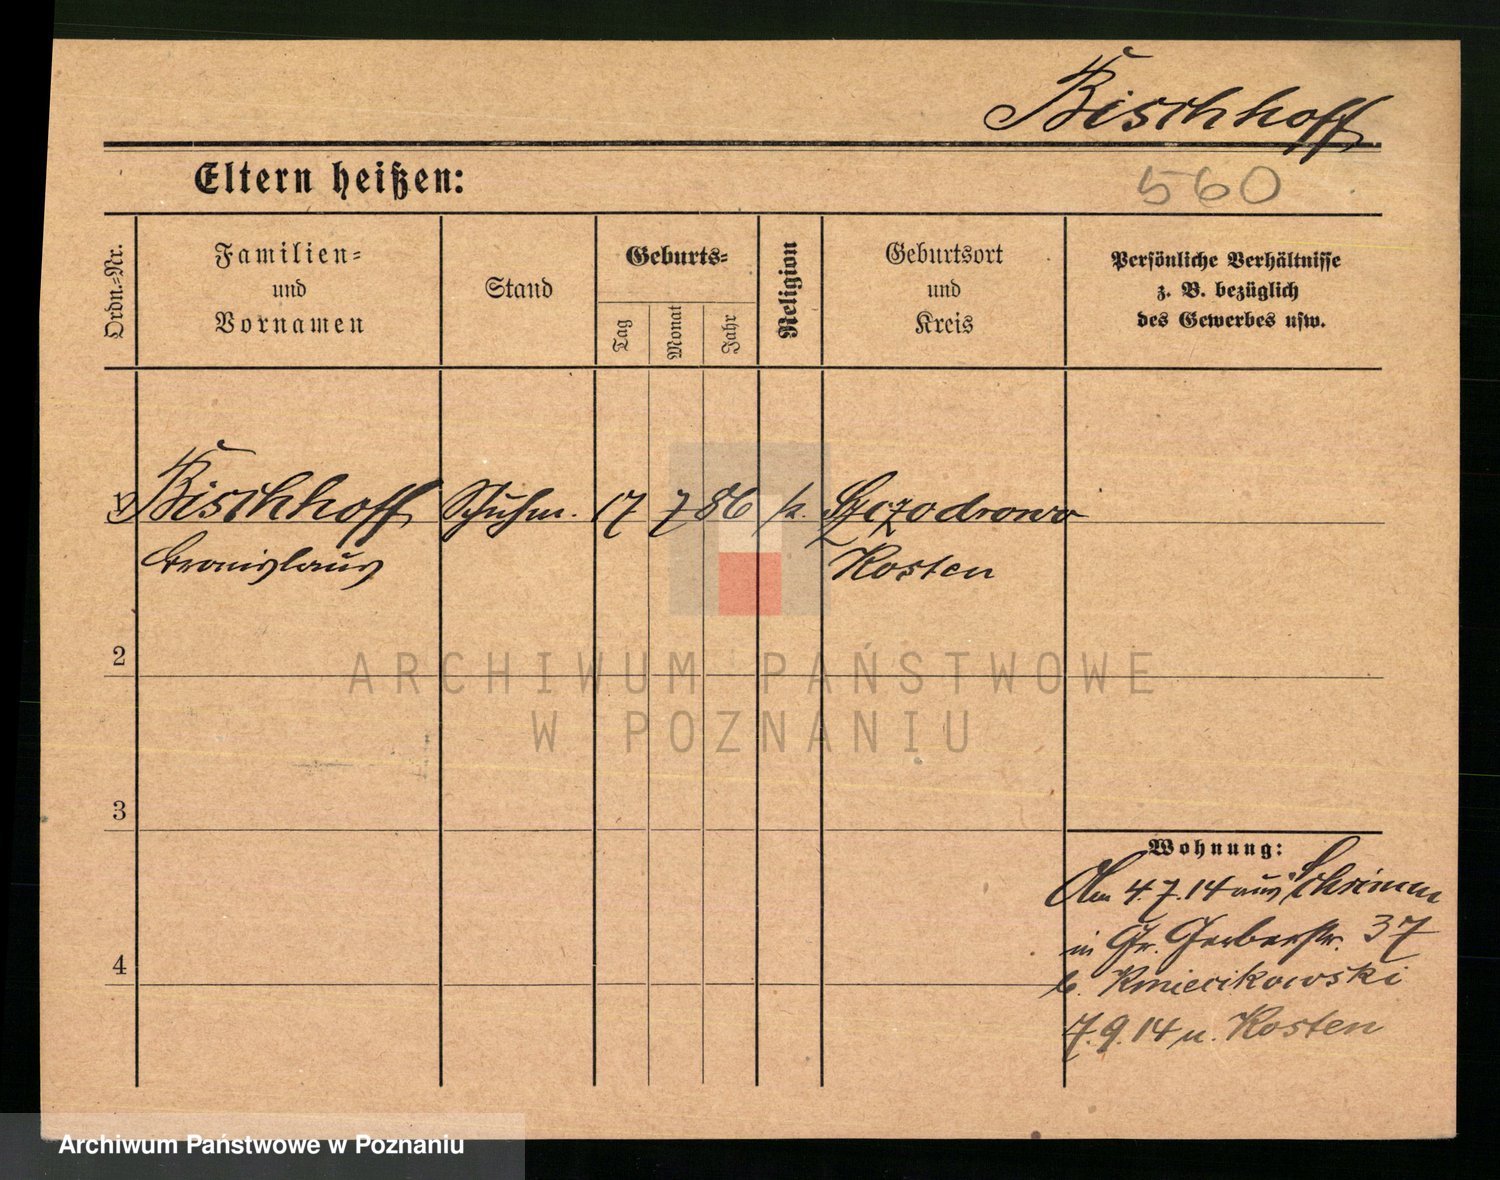 Bischhoff
Eltern heißen:
560
Ordn.-Nr.
Familien-
und
Vornamen
Stand
Geburts-
Tag
Monat
Jahr
Religion
Geburtsort
und
Kreis
Persönliche Verhältnisse
z. B. bezüglich
des Gewerbes usw.
Bischhoff Schuhm. 17 7 86 k. Szczodrowo
Bronislaus Kosten
2
ARCHIWUM PAŃSTWOWE
W POZNANIU
3
Wohnung:
Am 4.7.14 aus Schrimm
in Gr. Gerberstr. 37
b. Kmiecikowski
4
7.9.14 n. Kosten
Archiwum Państwowe w Poznaniu